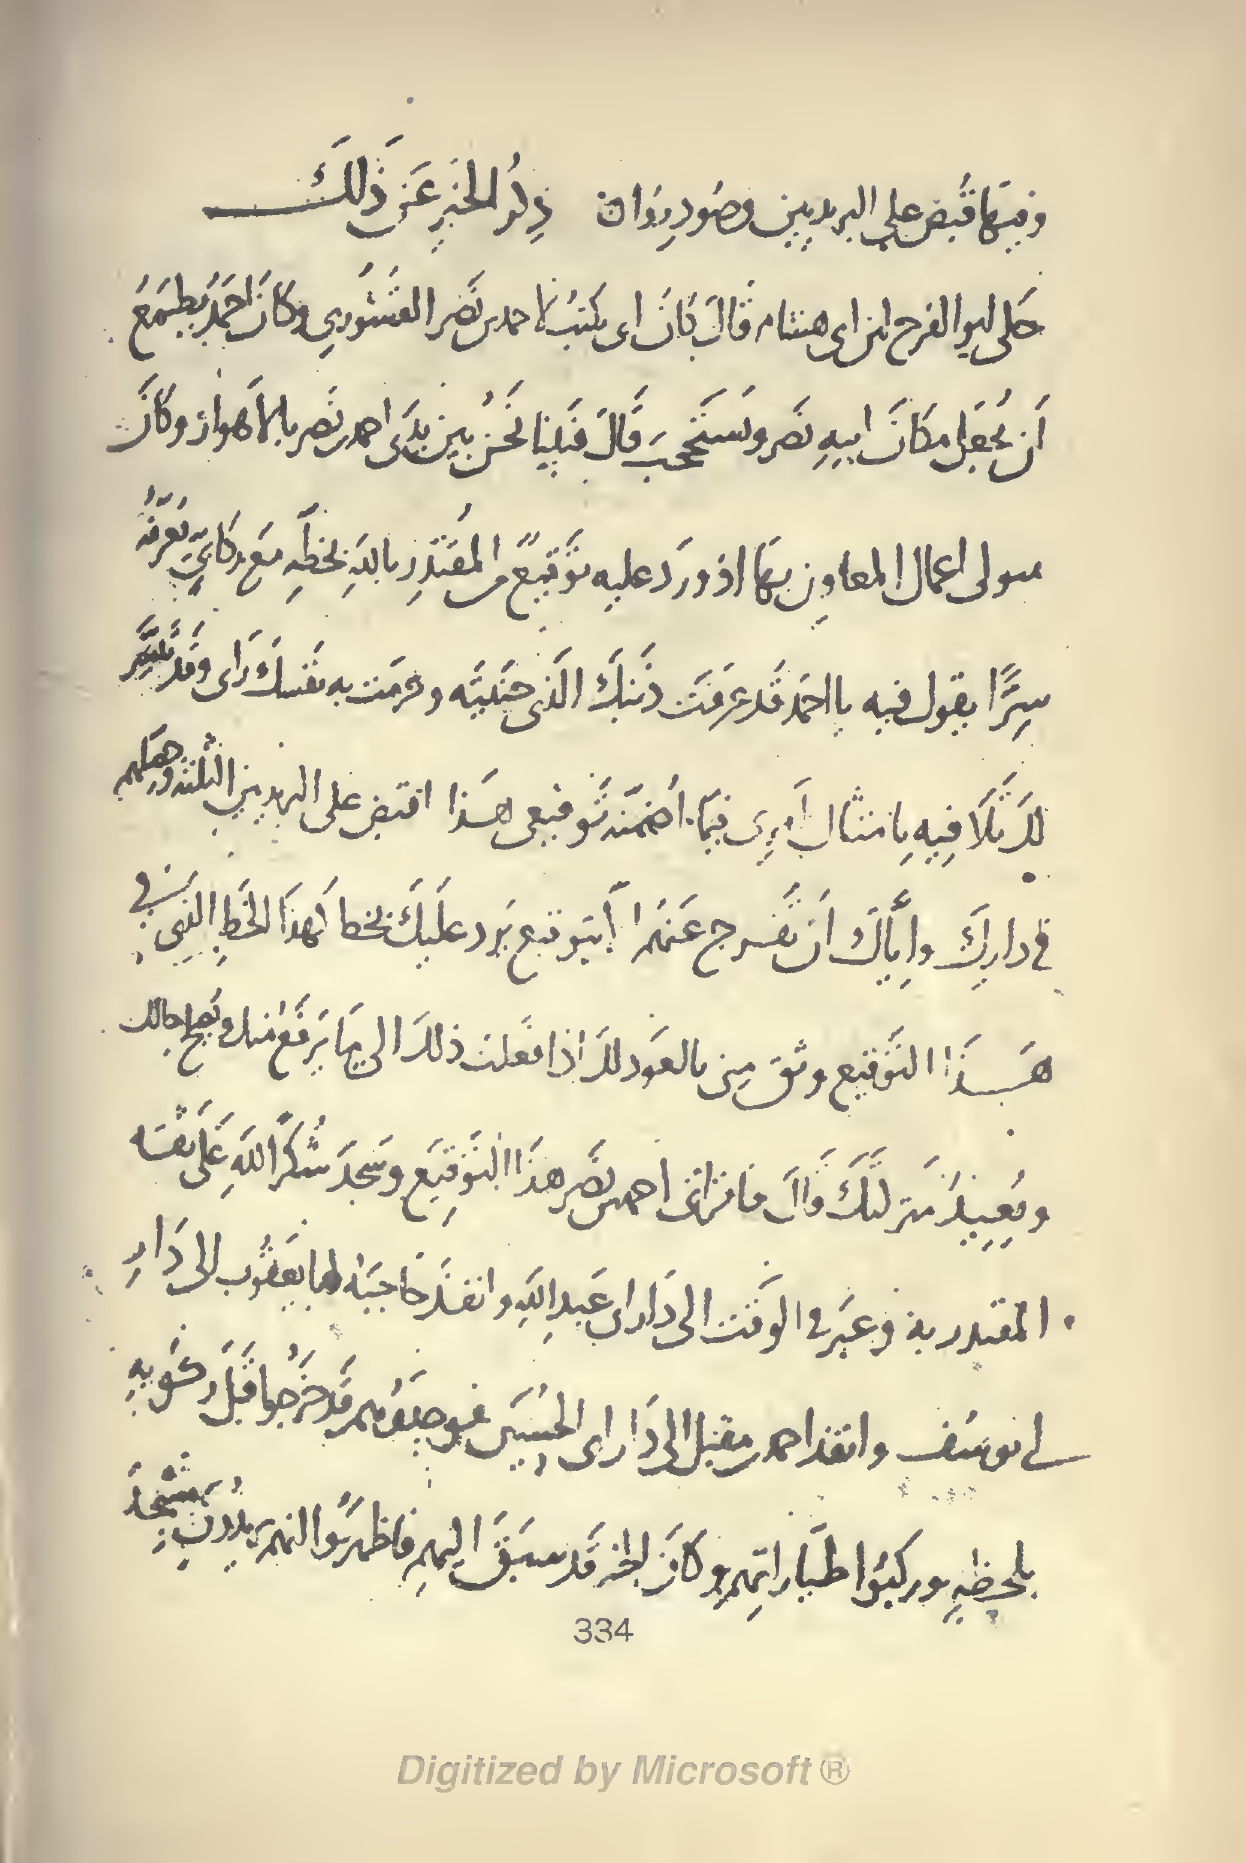 وفيها قبض على البريديين وصودروا ذكر الخبر عن ذلك
حكى ابو الفرج ابن ابى هشام قال كان ابى يكتب لاحمد بن نصر القشورى وكان احمد يطمع
أن يجعل مكان ابيه نصر ويستحجب قال فبينا نحن بين يدى احمد بن نصر بالاهواز وكان
يتولى اعمال المعاون بها اذ ورد عليه توقيع من المقتدر بالله بخطه مع ركابىّ يعرفه
سرّا يقول فيه يا احمد قد عرفت ذنبك الذى جنيته وحرمت به نفسك رأى وقد تيسّر
لك تلافيه بامتثال أمرى فيما أضمنه توقيعى هذا اقبض على البريديين الثلثة وحصّلهم
فى دارك وإيّاك أن تفرج عنهم الّا بتوقيع يرد عليك بخط كهذا الخط الذى فى
هذا التوقيع وثق منى بالعود لك اذا فعلت ذلك الى ما يرفع منك ويصلح حالك
ويعيد منزلتك قال فاقرأنى احمد بن نصر هذا التوقيع وسجد شكرا لله على نفسه
المقتدر به وعبر فى الوقت الى دار ابى عبد الله وانفذ حاجبيه ابا يعقوب الى دار
ابى يوسف وانفذ احمد بن مقبل الى دار ابى الحسين فوجدهم قد خرجوا قبل ركوبه
بلحظة وركبوا طياراتهم وكان الخبر قد سبق اليهم فاظهروا انهم يريدون مسجد
334
Digitized by Microsoft ®